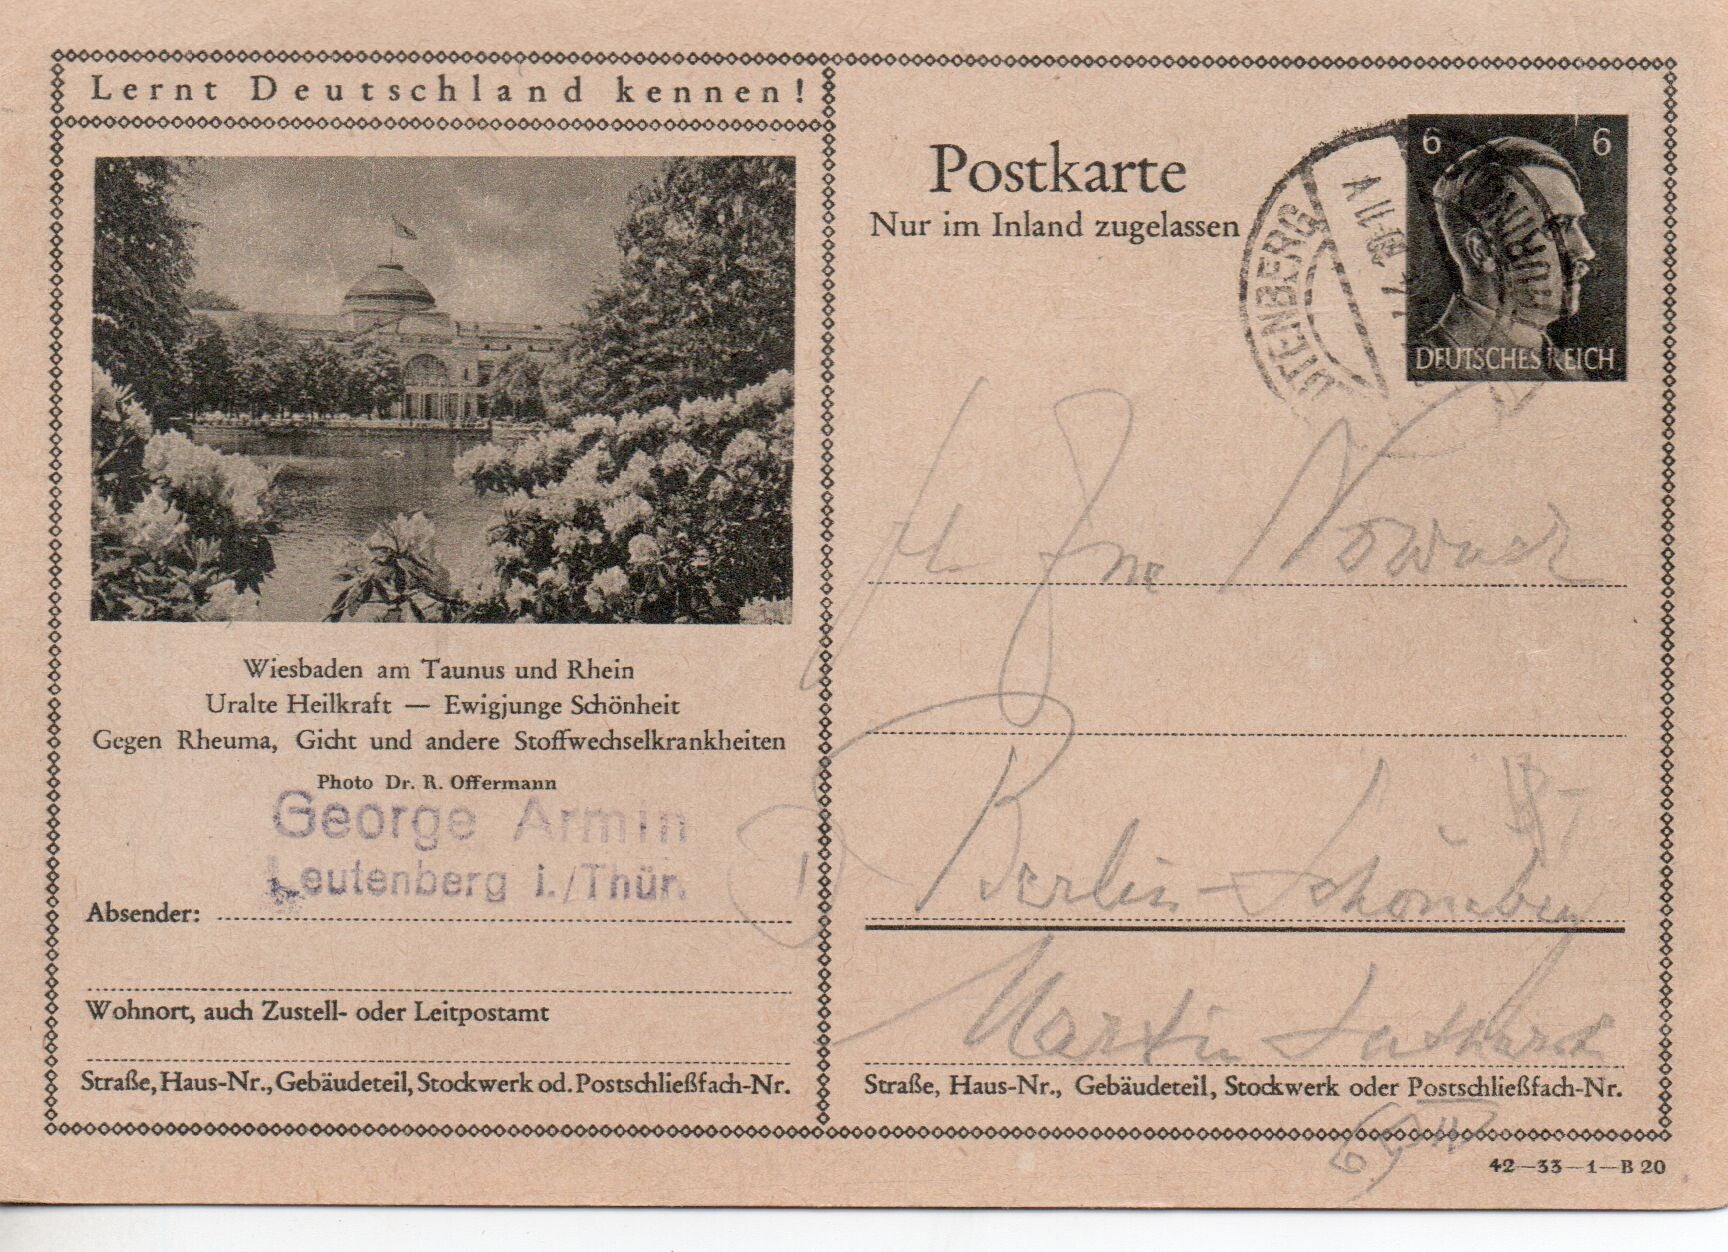 Lernt Deutschland kennen!
Wiesbaden am Taunus und Rhein
Uralte Heilkraft — Ewigjunge Schönheit
Gegen Rheuma, Gicht und andere Stoffwechselkrankheiten
Photo Dr. R. Offermann
George Armin
Leutenberg i./Thür.
Absender:
Wohnort, auch Zustell- oder Leitpostamt
Straße, Haus-Nr., Gebäudeteil, Stockwerk od. Postschließfach-Nr.
Postkarte
Nur im Inland zugelassen
6 6
DEUTSCHES REICH
Berlin-Schöneberg
Martin Luther
Straße, Haus-Nr., Gebäudeteil, Stockwerk oder Postschließfach-Nr.
42—33—1—B 20